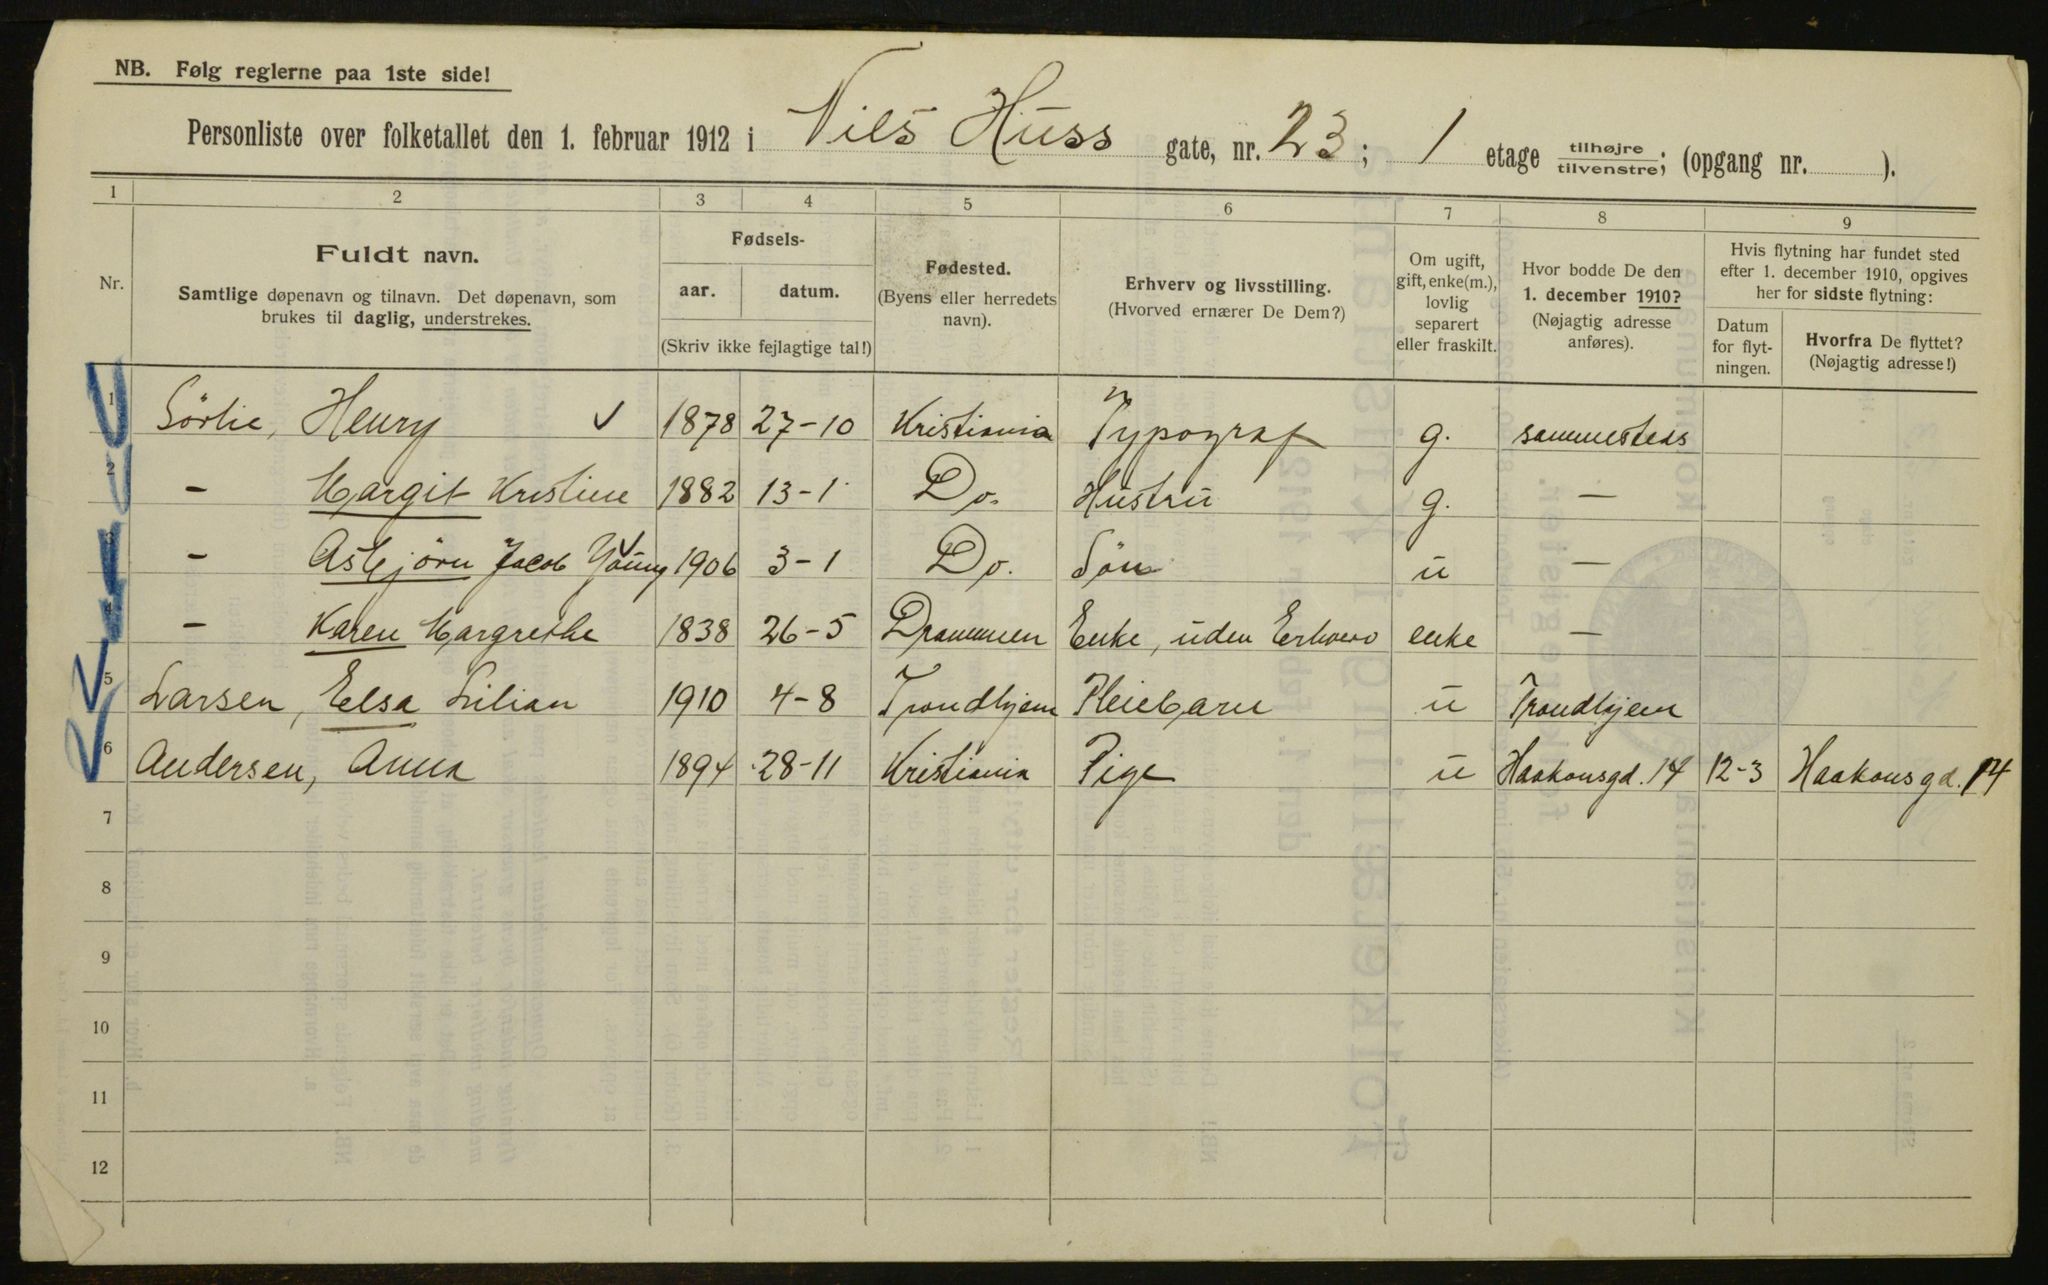 NB. Følg reglerne paa 1ste side!
Personliste over folketallet den 1. februar 1912 i Niels Huss gate, nr. 23; 1 etage tilhøjre/tilvenstre; (opgang nr. ).
1 2 3 4 5 6 7 8 9
Nr.
Fuldt navn.
Samtlige døpenavn og tilnavn. Det døpenavn, som
brukes til daglig, understrekes.
Fødsels-
aar. datum.
(Skriv ikke fejlagtige tal!)
Fødested.
(Byens eller herredets
navn).
Erhverv og livsstilling.
(Hvorved ernærer De Dem?)
Om ugift,
gift, enke(m.),
lovlig
separert
eller fraskilt.
Hvor bodde De den
1. december 1910?
(Nøjagtig adresse
anføres).
Hvis flytning har fundet sted
efter 1. december 1910, opgives
her for sidste flytning:
Datum
for flyt-
ningen.
Hvorfra De flyttet?
(Nøjagtig adresse!)
1 Sörlie, Henry 1878 27-10 Kristiania Typograf g. sammesteds
2 - Margit Kristine 1882 13-1 Do. Hustru g. -
3 - Asbjörn Jacob Young 1906 3-1 Do. Sön u -
4 - Karen Margrethe 1838 26-5 Drammen Enke, uden Erhverv enke -
5 Larsen, Elsa Lilian 1910 4-8 Trondhjem Pleiebarn u Trondhjem
6 Andersen, Anna 1894 28-11 Kristiania Pige u Haakonsgd. 14 12-3 Haakonsgd. 14
7
8
9
10
11
12